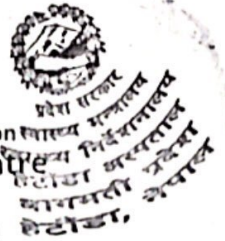 प्रदेश सरकार
स्वास्थ्य मन्त्रालय
स्वास्थ्य निर्देशनालय
हेटौंडा अस्पताल
बागमती प्रदेश
हेटौंडा, नेपाल